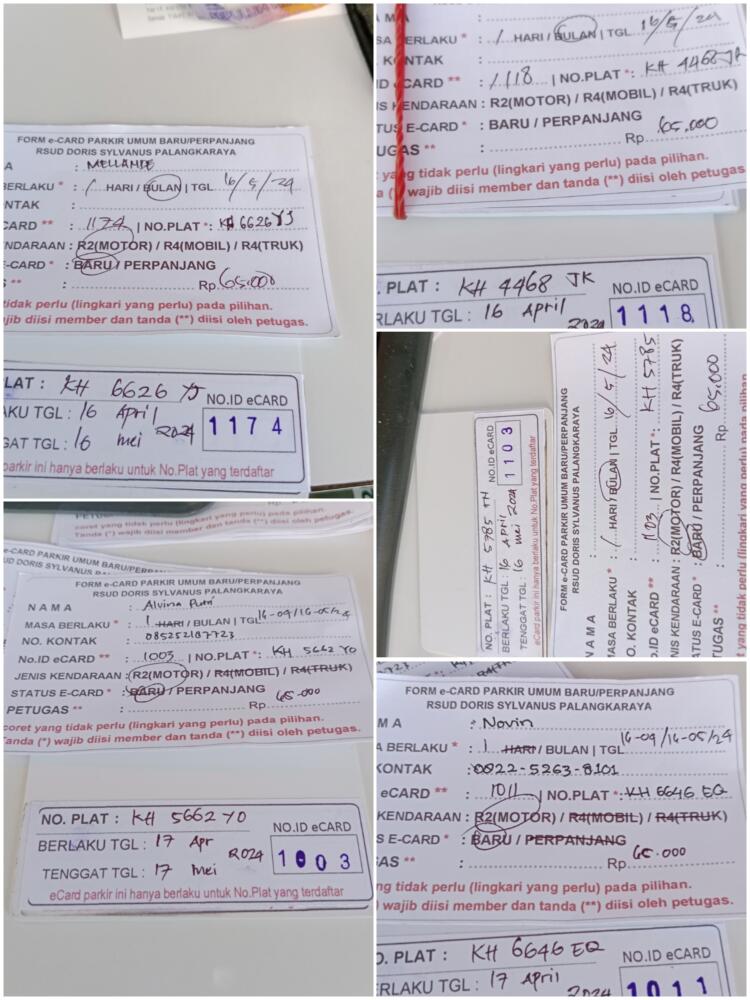 FORM e-CARD PARKIR UMUM BARU/PERPANJANG
RSUD DORIS SYLVANUS PALANGKARAYA
A : MELLANDE
BERLAKU * : 1 HARI / BULAN | TGL 16/5/24
NTAK :
CARD ** : 1174 | NO.PLAT *: KH 6626 YJ
NDARAAN : R2(MOTOR) / R4(MOBIL) / R4(TRUK)
E-CARD * : BARU / PERPANJANG
S ** : Rp 65.000
tidak perlu (lingkari yang perlu) pada pilihan.
jib diisi member dan tanda (**) diisi oleh petugas.
LAT : KH 6626 YJ
AKU TGL : 16 April 2024
GAT TGL : 16 mei
NO.ID eCARD
1174
parkir ini hanya berlaku untuk No.Plat yang terdaftar
AMA :
ASA BERLAKU * : 1 HARI / BULAN | TGL 16/5/24
. KONTAK :
ID eCARD ** : 1118 | NO.PLAT *: KH 4468 JK
IS KENDARAAN : R2(MOTOR) / R4(MOBIL) / R4(TRUK)
ATUS E-CARD * : BARU / PERPANJANG
TUGAS ** : Rp 65.000
yang tidak perlu (lingkari yang perlu) pada pilihan.
a (*) wajib diisi member dan tanda (**) diisi oleh petugas
. PLAT : KH 4468 JK
RLAKU TGL : 16 April 2024
NO.ID eCARD
1118
NO. PLAT : KH 5785 TH
BERLAKU TGL : 16 April 2024
TENGGAT TGL : 16 mei
NO.ID eCARD
1103
eCard parkir ini hanya berlaku untuk No.Plat yang terdaftar
FORM e-CARD PARKIR UMUM BARU/PERPANJANG
RSUD DORIS SYLVANUS PALANGKARAYA
NAMA :
MASA BERLAKU * : 1 HARI / BULAN | TGL 16/5/24
O. KONTAK :
O.ID eCARD ** : 1103 | NO.PLAT *: KH 5785
NIS KENDARAAN : R2(MOTOR) / R4(MOBIL) / R4(TRUK)
TATUS E-CARD * : BARU / PERPANJANG
TUGAS ** : 65.000
yang tidak perlu (lingkari yang perlu) pada pilihan
coret yang tidak perlu (lingkari yang perlu) pada pilihan.
e-CARD PARKIR UMUM BARU/PERPANJANG
FORM e-CARD PARKIR UMUM BARU/PERPANJANG
RSUD DORIS SYLVANUS PALANGKARAYA
NAMA : Alvina Putri
MASA BERLAKU * : 1 HARI / BULAN | TGL 16-04/16-05/24
NO. KONTAK : 085252187723
No.ID eCARD ** : 1003 | NO.PLAT *: KH 5662 YO
JENIS KENDARAAN : R2(MOTOR) / R4(MOBIL) / R4(TRUK)
STATUS E-CARD * : BARU / PERPANJANG
PETUGAS ** : Rp 65.000
coret yang tidak perlu (lingkari yang perlu) pada pilihan.
Tanda (*) wajib diisi member dan tanda (**) diisi oleh petugas.
NO. PLAT : KH 5662 YO
BERLAKU TGL : 17 Apr 2024
TENGGAT TGL : 17 mei
NO.ID eCARD
1003
eCard parkir ini hanya berlaku untuk No.Plat yang terdaftar
FORM e-CARD PARKIR UMUM BARU/PERPANJANG
RSUD DORIS SYLVANUS PALANGKARAYA
MA : Novin
A BERLAKU * : 1 HARI / BULAN | TGL 16-04/16-05/24
KONTAK : 0822-5263-8101
eCARD ** : 1011 | NO.PLAT *: KH 6646 EQ
KENDARAAN : R2(MOTOR) / R4(MOBIL) / R4(TRUK)
S E-CARD * : BARU / PERPANJANG
AS ** : Rp 65.000
ng tidak perlu (lingkari yang perlu) pada pilihan.
wajib diisi member dan tanda (**) diisi oleh petugas.
O. PLAT : KH 6646 EQ
RLAKU TGL : 17 April 2024
NO.ID eCARD
1011